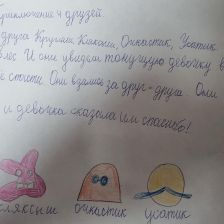 Приключение 4 друзей.
друга Кругляк Кляксыш, Очкастик, Усатик.
лес. И они увидели тонущую девочку в
е спасти. Они взялись за друг-друга. Они
и девочка сказала им спасибо!
ляксыш очкастик усатик